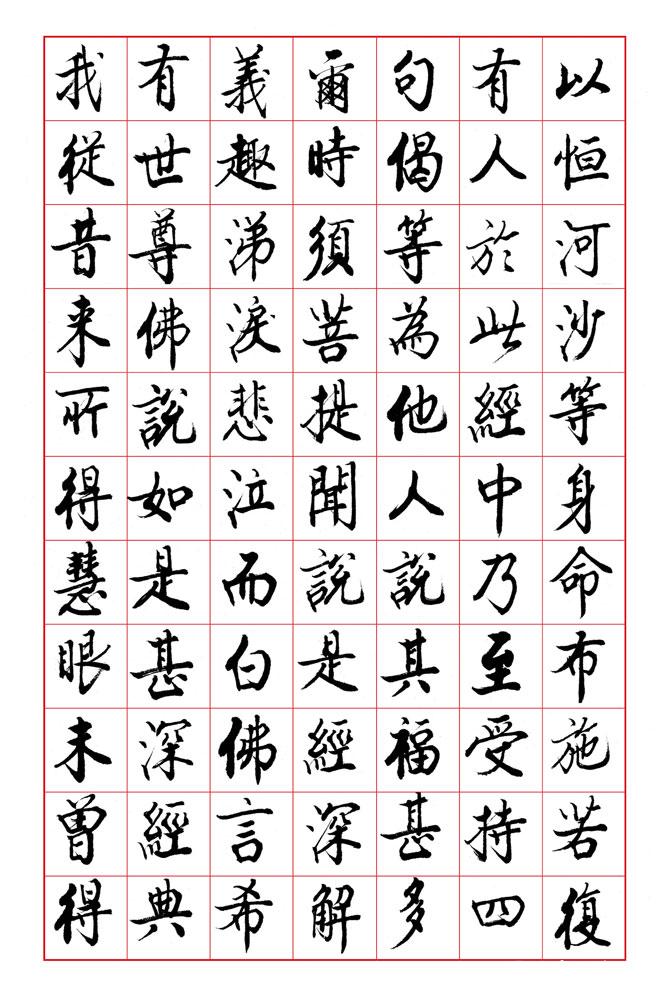 以恒河沙等身命布施若復
有人於此經中乃至受持四
句偈等為他人說其福甚多
爾時須菩提聞說是經深解
義趣涕淚悲泣而白佛言希
有世尊佛說如是甚深經典
我從昔来所得慧眼未曾得